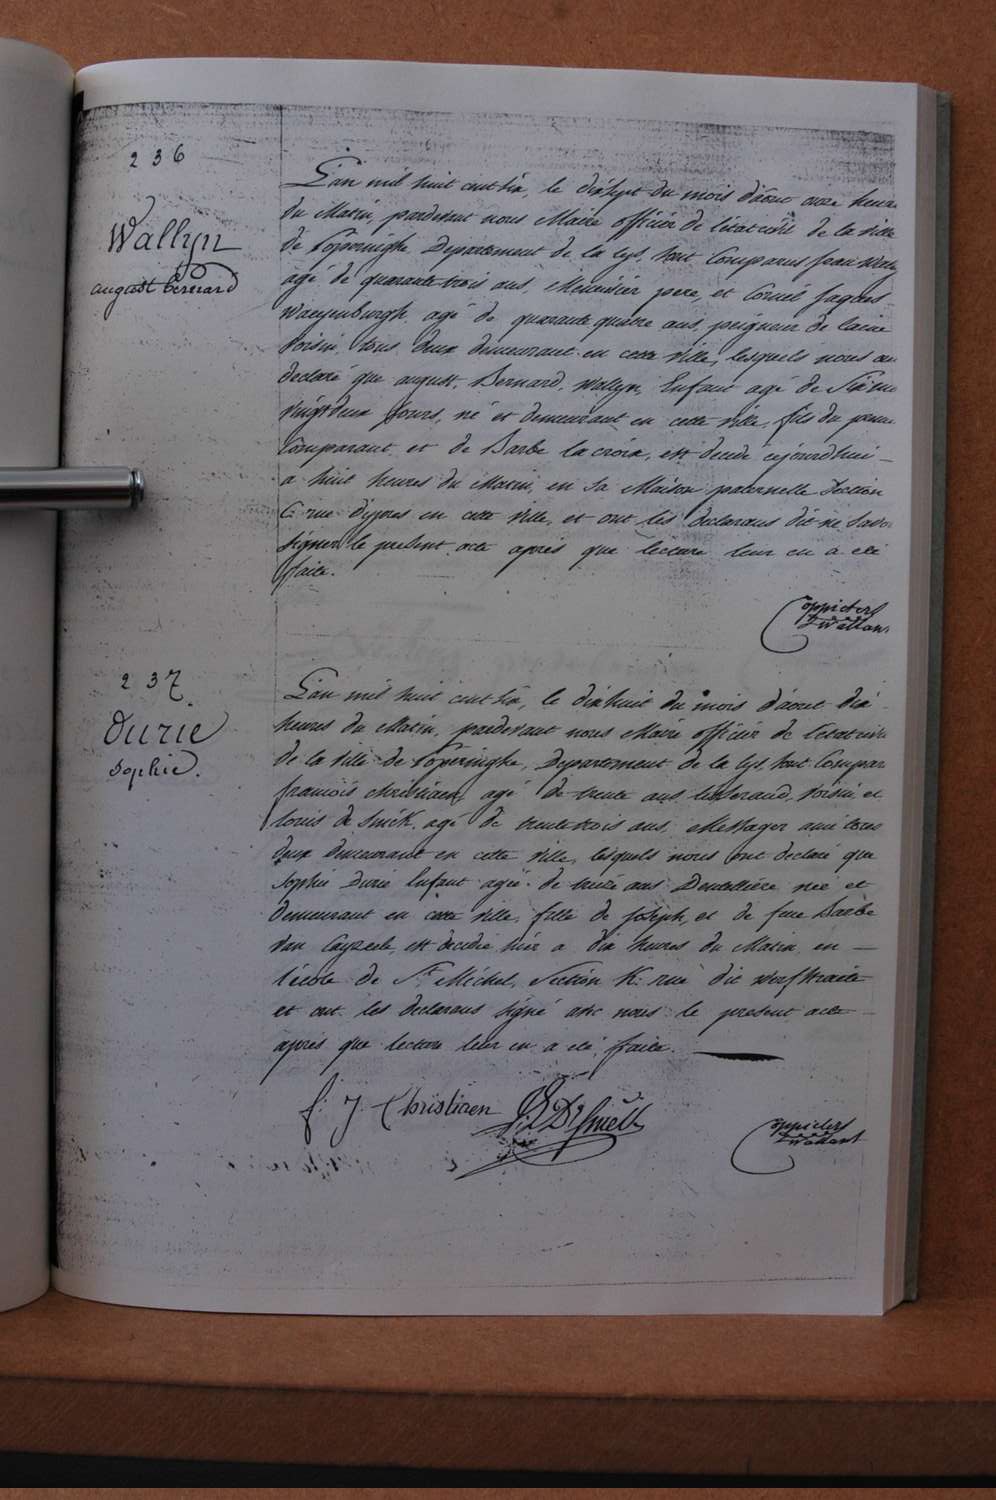 236
Wallyn
august Bernard
L'an mil huit cent dix, le dixsept du mois d'août onze heures
du Matin, pardevant nous Maire officier de l'état civil de la ville
de Poperinghe, Departement de la Lys, sont Comparus Jean Wally
agé de quarante trois ans, Meunier pere, et Corneil Jaques
Waeyenburgh, agé de quarante quatre ans, peigneur de laine
Voisin, tous deux demeurant en cette ville, lesquels nous on
declaré que august, Bernard, Wallyn, Enfant agé de
vingt deux jours, né et demeurant en cette ville, fils du premier
Comparant, et de Barbe lacroix, est decedé cejourdhui
a huit heures du Matin, en sa Maison paternelle Section
C: rue d'ypres en cette ville, et ont les declarans dit ne Savoir
Signer le present acte après que lecture leur en a été
faite.
237
Durie
Sophie.
L'an mil huit cent dix, le dixhuit du mois d'aout dix
heures du Matin, pardevant nous Maire officier de l'état civil
de la ville de Poperinghe, Departement de la Lys, sont Compar
françois Christiaen, agé de trente ans, tisserand, Voisin et
Louis de Smick, agé de trente trois ans, Messager ami tous
deux demeurant en cette ville, lesquels nous ont declaré que
Sophie Durie Enfant agée de treize ans Dentellière née et
demeurant en cette ville, fille de joseph, et de feue Barbe
Van Cayzeele, est decedée hier a dix heures du Matin, en
l'école de St. Michel, Section K: rue dit werfstraete
et ont les declarans signé avec nous le present acte
après que lecture leur en a été faite.
f: J Christiaen